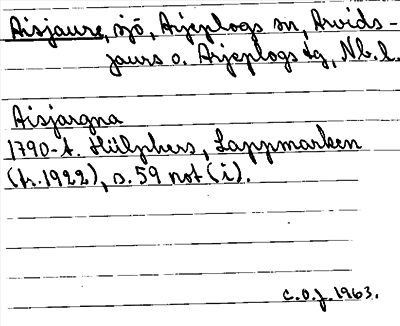 Aisjaure, sjö, Arjeplogs sn, Arvids-
jaurs o. Arjeplogs tg, Nb. l.
Aisjargna
1790-t. Hülphers, Lappmarken
(tr. 1922), s. 59 not (i).
C.O.J. 1963.